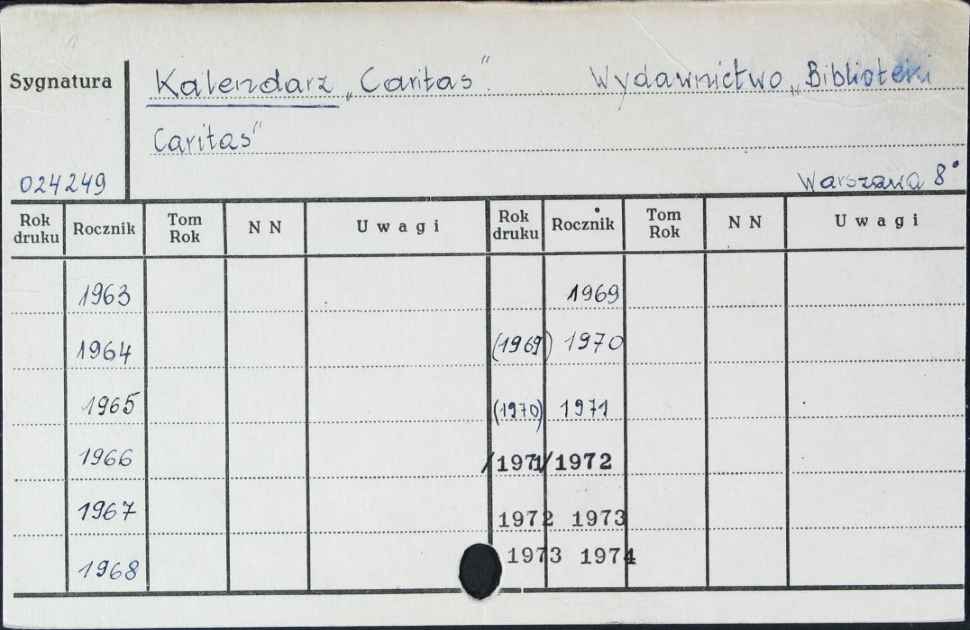 Sygnatura Kalendarz „Caritas". Wydawnictwo „Biblioteki
Caritas"
024249 Warszawa 8°
Rok druku Rocznik Tom Rok N N Uwagi Rok druku Rocznik Tom Rok N N Uwagi
1963 1969
1964 (1969) 1970
1965 (1970) 1971
1966 /1971/1972
1967 1972 1973
1968 1973 1974